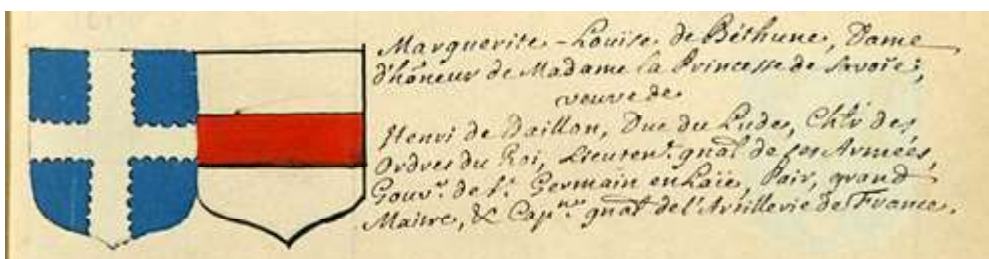 Marguerite-Louise de Béthune, Dame
d'hôneur de Madame la Princesse de Savoïe;
veuve de
Henri de Daillon, Duc du Ludes, Chlr des
Ordres du Roi, Lieutent. gnal de ses Armées,
Gouvr. de St. Germain en Laïe, Pair, grand
Maitre, & Capne. gnal de l'Artillerie de France.